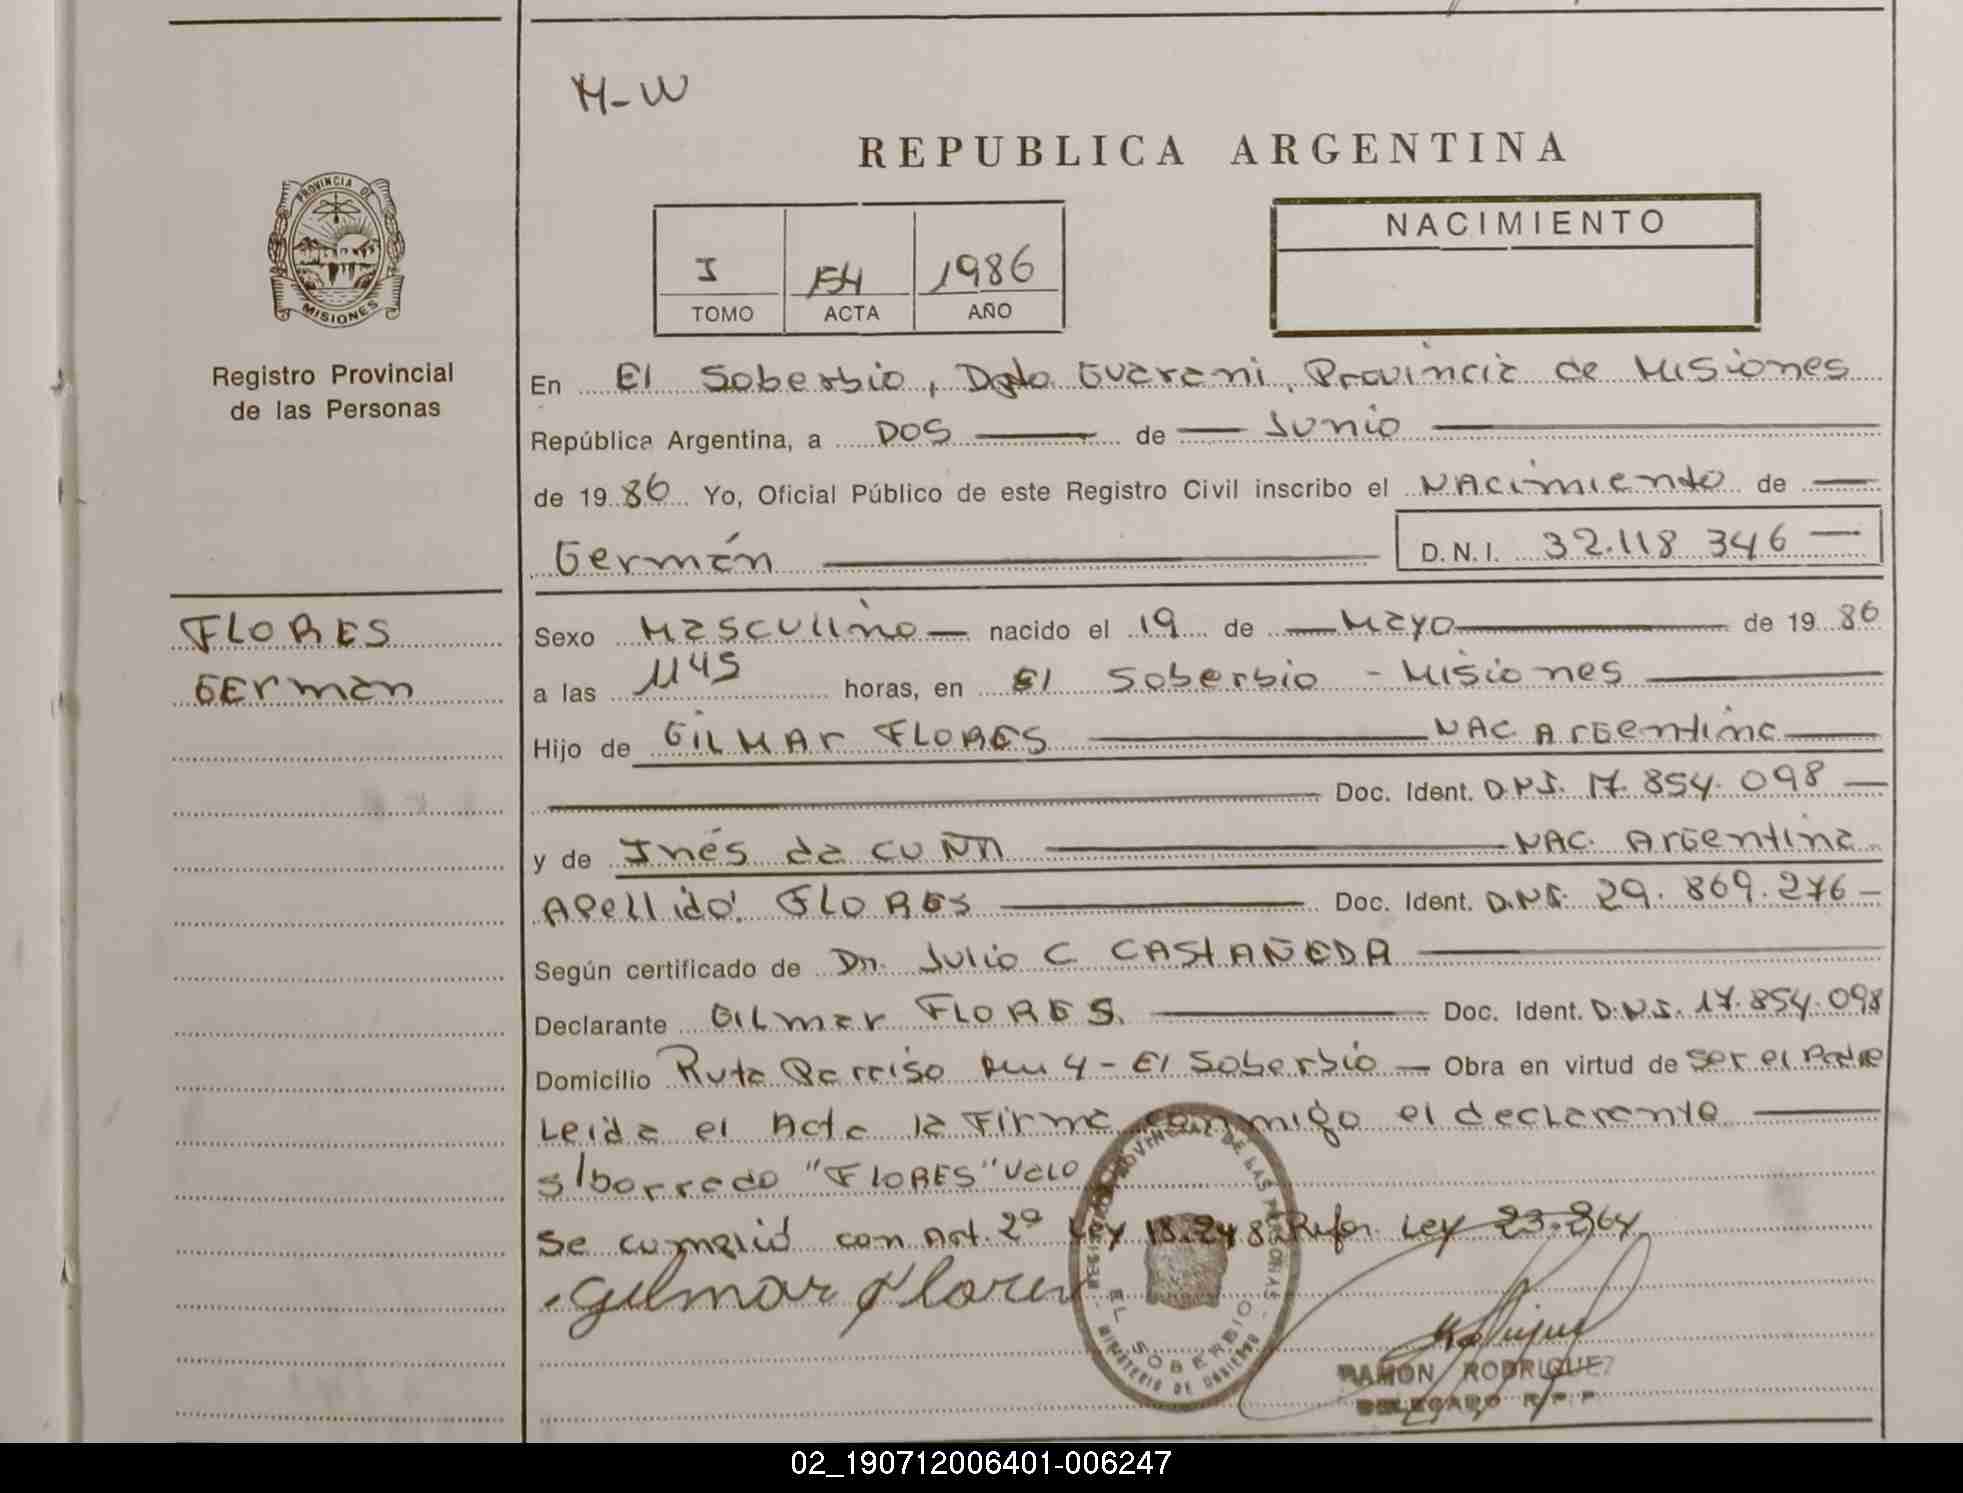 M-W
REPUBLICA ARGENTINA
PROVINCIA DE
MISIONES
Registro Provincial
de las Personas
I 154 1986
TOMO ACTA AÑO
NACIMIENTO
En El Soberbio, Dpto Guarani, Provincia de Misiones
República Argentina, a DOS de Junio
de 1986 Yo, Oficial Público de este Registro Civil inscribo el Nacimiento de
Germán D.N.I. 32.118 346
FLORES
German
Sexo Masculino nacido el 19 de Mayo de 1986
a las 1145 horas, en El Soberbio - Misiones
Hijo de GILMAR FLORES NAC Argentina
Doc. Ident. D.N.I. 17.854.098
y de Inés da CUÑA NAC. Argentina
Apellido: FLORES Doc. Ident. D.N.I. 29.869.276
Según certificado de Dr. Julio C CASTAÑEDA
Declarante Gilmar FLORES. Doc. Ident. D.N.I. 17.854.098
Domicilio Ruta Paraiso Km 4 - El Soberbio Obra en virtud de ser el Padre
Leida el Acta la Firma conmigo el declarante
s/borrado "FLORES" Vale
Se cumplió con Art. 2º Ley 18.248 Refor. Ley 23.264
Gilmar Flores
REGISTRO PROVINCIAL DE LAS PERSONAS
EL SOBERBIO
MINISTERIO DE GOBIERNO
RAMON RODRIGUEZ
DELEGADO R.P.P.
02_190712006401-006247